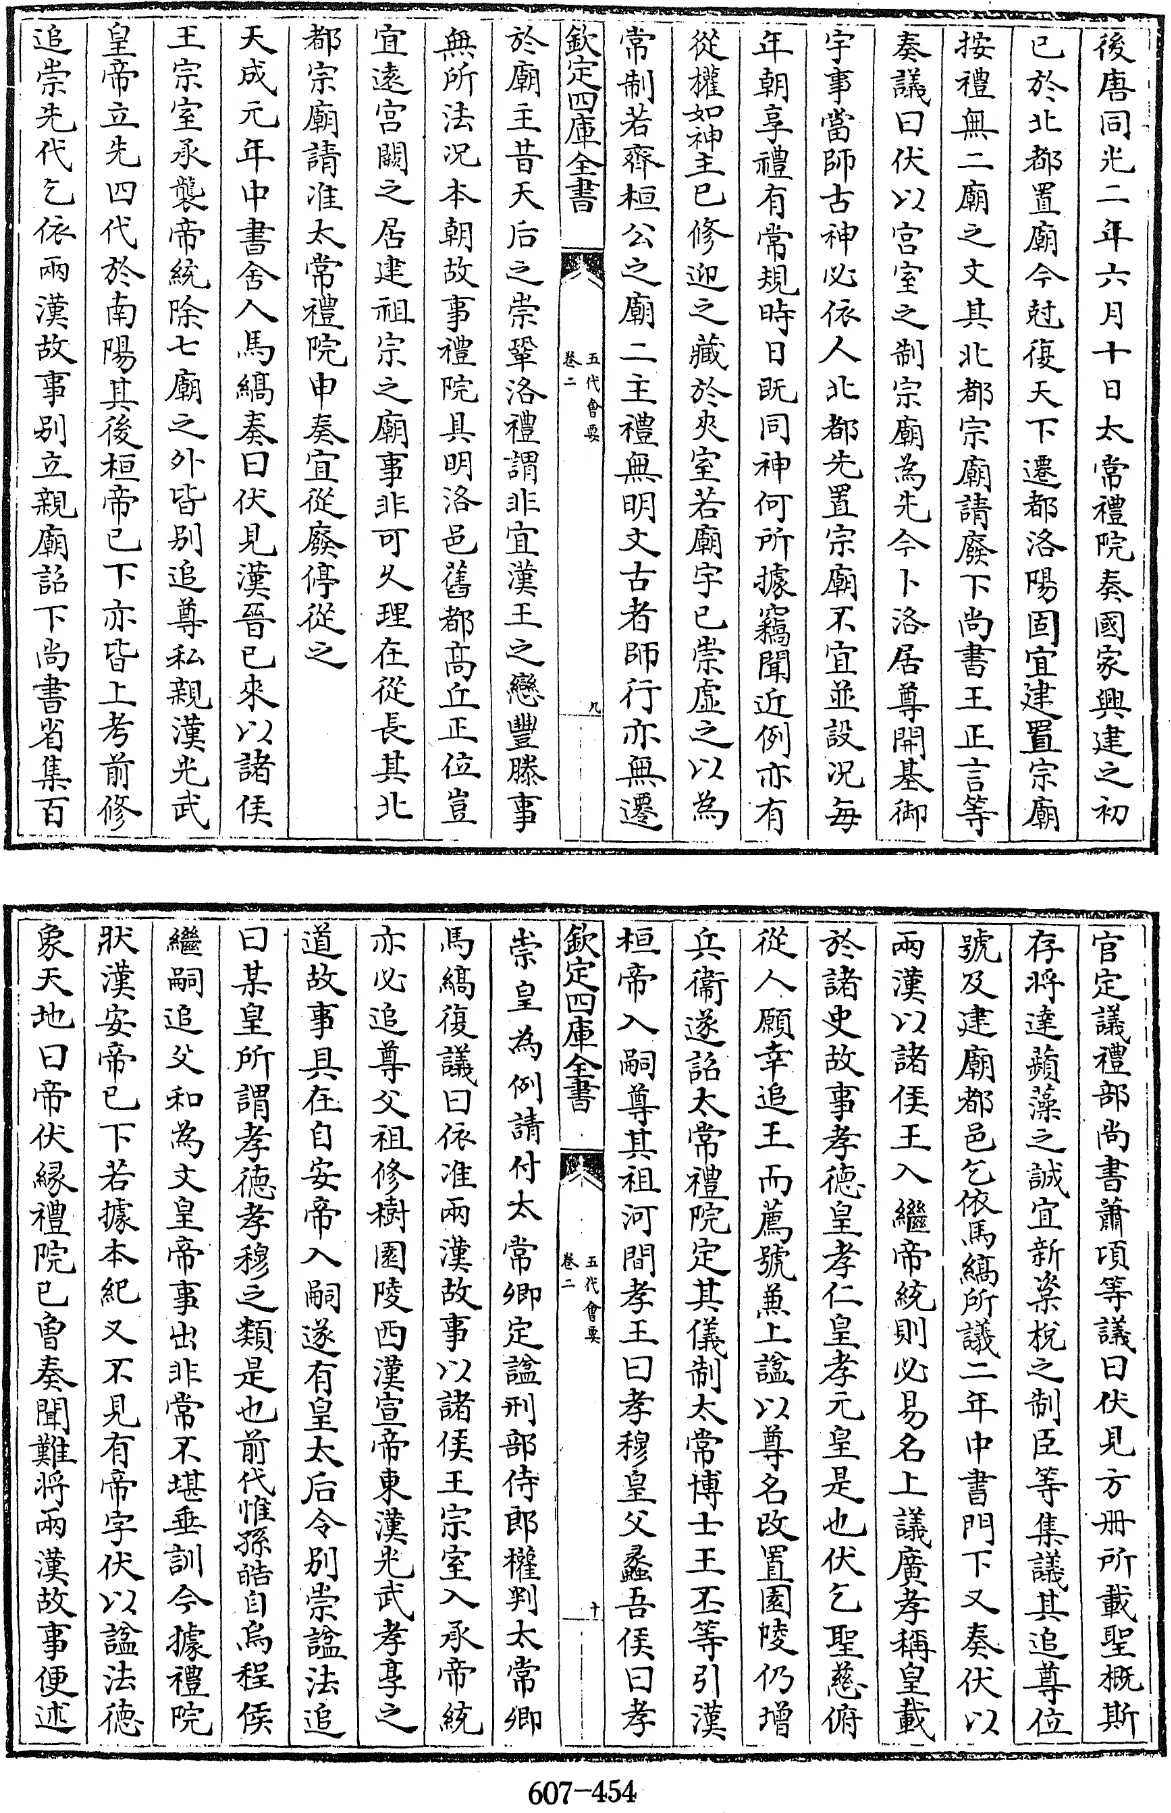 後唐同光二年六月十日太常禮院奏國家興建之初
已於北都置廟今尅復天下遷都洛陽固宜建置宗廟
按禮無二廟之文其北都宗廟請廢下尚書王正言等
奏議曰伏以宫室之制宗廟為先今卜洛居尊開基御
宇事當師古神必依人北都先置宗廟不宜並設况每
年朝享禮有常規時日既同神何所據竊聞近例亦有
從權如神主已修迎之藏於夾室若廟宇已崇虚之以為
常制若齊桓公之廟二主禮無明文古者師行亦無遷
欽定四庫全書
五代會要
卷二
九
於廟主昔天后之崇鞏洛禮謂非宜漢王之戀豐滕事
無所法况本朝故事禮院具明洛邑舊都髙丘正位豈
宜遠宫闕之居建祖宗之廟事非可久理在從長其北
都宗廟請准太常禮院申奏宜從廢停從之
天成元年中書舍人馬縞奏曰伏見漢晉已來以諸侯
王宗室承襲帝統除七廟之外皆别追尊私親漢光武
皇帝立先四代於南陽其後桓帝已下亦皆上考前修
追崇先代乞依兩漢故事别立親廟詔下尚書省集百
官定議禮部尚書蕭頃等議曰伏見方冊所載聖概斯
存將達蘋藻之誠宜新楶梲之制臣等集議其追尊位
號及建廟都邑乞依馬縞所議二年中書門下又奏伏以
兩漢以諸侯王入繼帝統則必易名上議廣孝稱皇載
於諸史故事孝德皇孝仁皇孝元皇是也伏乞聖慈俯
從人願幸追王而薦號兼上諡以尊名改置園陵仍增
兵衞遂詔太常禮院定其儀制太常博士王丕等引漢
桓帝入嗣尊其祖河間孝王曰孝穆皇父蠡吾侯曰孝
欽定四庫全書
五代會要
卷二
十
崇皇為例請付太常卿定諡刑部侍郎權判太常卿
馬縞復議曰依准兩漢故事以諸侯王宗室入承帝統
亦必追尊父祖修樹園陵西漢宣帝東漢光武孝享之
道故事具在自安帝入嗣遂有皇太后令别崇諡法追
曰某皇所謂孝德孝穆之類是也前代惟孫皓自烏程侯
繼嗣追父和為文皇帝事出非常不堪垂訓今據禮院
狀漢安帝已下若據本紀又不見有帝字伏以諡法德
象天地曰帝伏縁禮院已曽奏聞難將兩漢故事便述
607-454